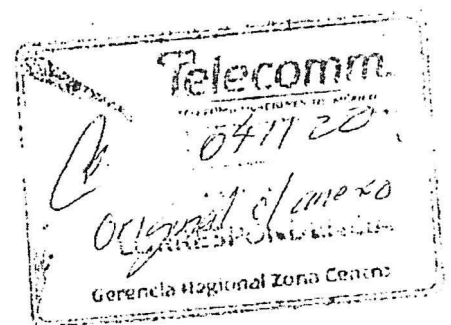 Telecomm.
TELECOMUNICACIONES DE MÉXICO
041120
Original c/ anexo
CORRESPONDENCIA
Gerencia Regional Zona Centro